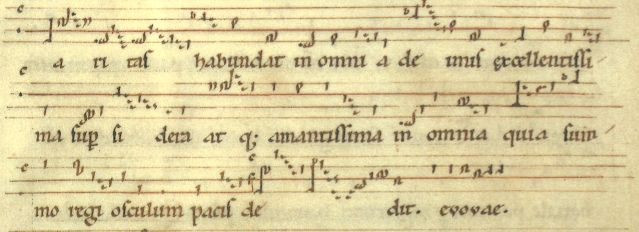 a ri tas habundat in omni a de imis excellentissi-
ma sup̄ si dera at q; amantissima in omnia quia sum-
mo regi osculum pacis de dit. evovae.